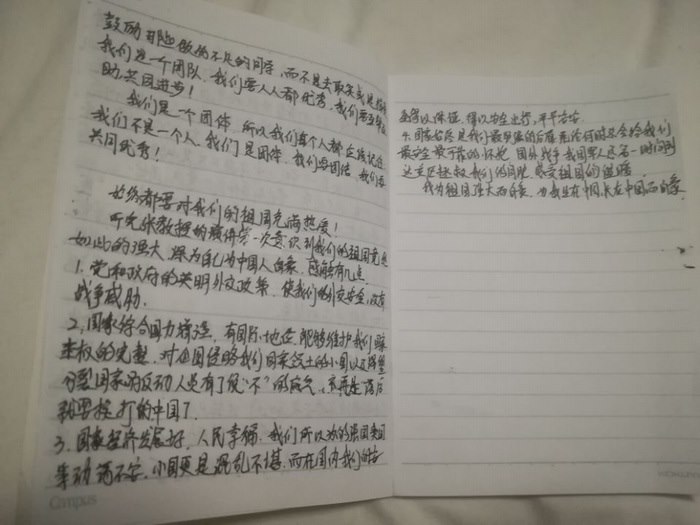 鼓励那些做的不足的同学，而不是去取笑或是
我们是一个团队，我们要人人都优秀，我们要互相
助，共同进步！
我们是一个团体，所以我们每个人都应该记住
我们不是一个人，我们是团体，我们要团结，我们要
共同优秀！
始终都要对我们的祖国充满热度！
听完张教授的演讲第一次意识到我们的祖国竟是
如此的强大，深为自己为中国人自豪，感触有几点
1. 党和政府的英明外交政策，使我们的外交安全，没有
战争威胁．
2. 国家综合国力增强，有国际地位，能够维护我们
主权的完整，对企图侵略我们国家领土的小国以及
分裂国家的反动人员有了说“不”的底气，不再是落后
就要挨打的中国了．
3. 国家经济发展好，人民幸福，我们所认为的强国美国
动荡不安，小国更是混乱不堪，而在国内我们的
Campus
得以保证，得以安全出行，平平安安
4. 国家始终是我们最坚强的后盾，无论何时总会给我们
最安全最可靠的怀抱，国外战争我国军人总第一时间到
达去拯救我们的同胞，感受祖国的温暖
我为祖国强大而自豪，为我生在中国长在中国而自豪